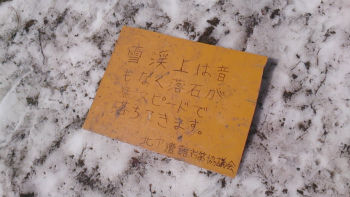 雪渓上は音
もなく落石が
猛スピードで
落ちてきます。
北ア遭難対策協議会